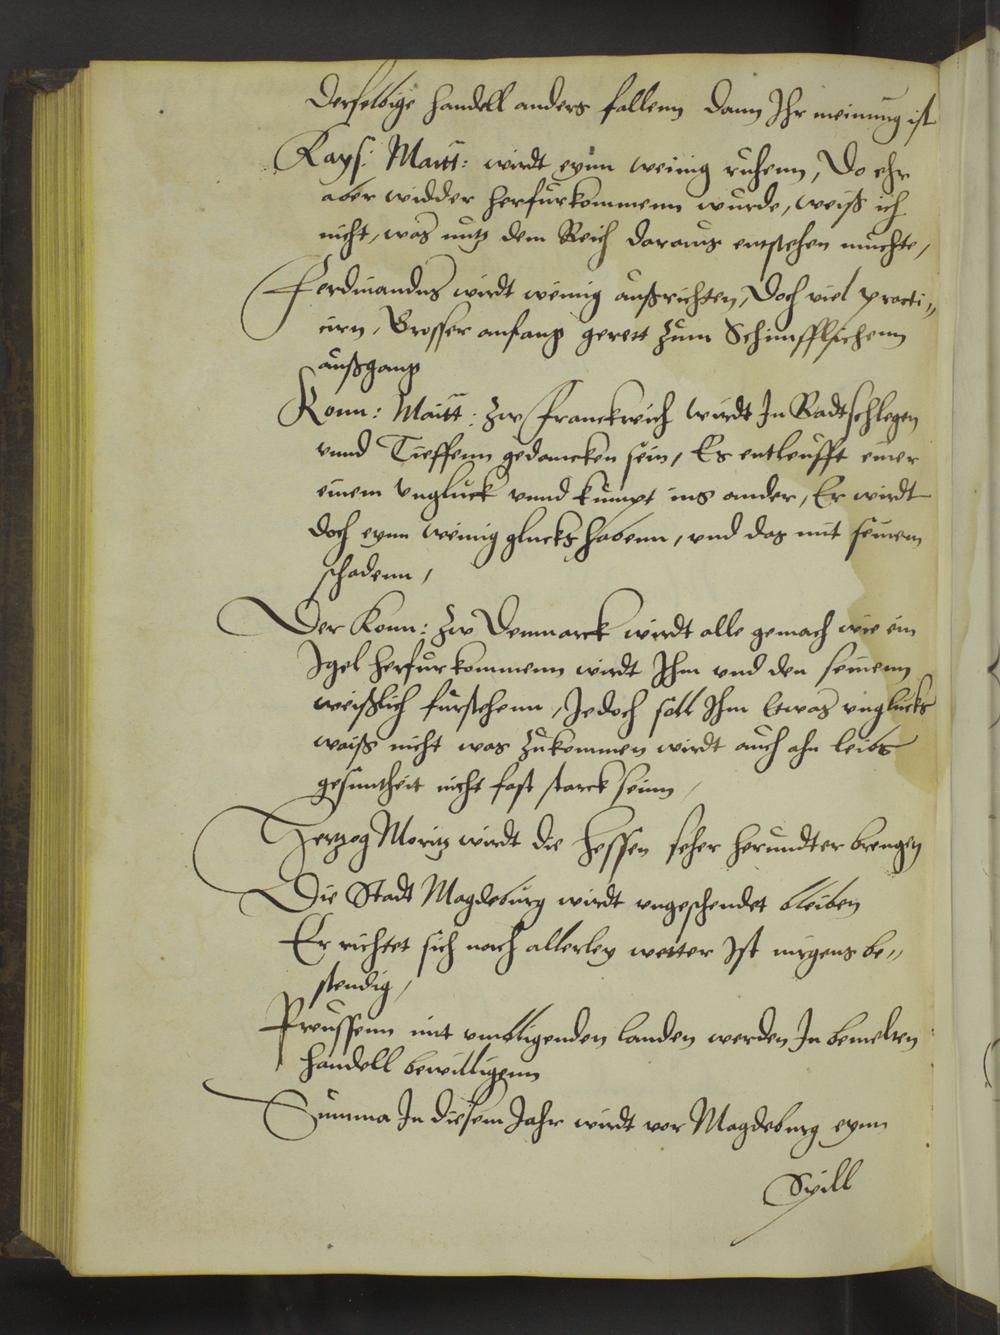 derselbige handell anders fallenn dann Ihr meinung ist
Kays: Maitt: wirdt eynn weinig ruhenn, Do ehr
aber widder herfurkommenn wurde, weiß ich
nicht, was nutz dem Reich daraus entstehen muchte,
Ferdinandus wirdt weinig außrichten, Doch viel practi„
cirn, Grosser anfang gerett zum Schimpfflichenn
außgang
Konn: Maitt: zw Franckreich wirdt In Radtschlegen
vnnd Tieffenn gedancken sein, Es entleufft einer
einem vngluck vnnd kumpt ins ander, Er wirdt
doch eynn weinig glucks habenn, vnd das mit seinem
schadenn,
Der Konn: zw Denmarck wirdt alle gemach wie ein
Igel herfur kommenn wirdt Ihm vnd den seinenn
weißlich furstehenn, Jedoch soll Ihm Etwas vnglucks
waiß nicht was zukommen wirdt auch ahn leibs
gesuntheit nicht fast starck seinn,
Hertzog Moritz wirdt die Hessen seher herundter brengen
Die Stadt Magdeburg wirdt vngeschendet bleiben
Er richtet sich nach allerley wetter Ist nirgens be„
stendig,
Preussenn mit vmbligenden landen werden In bemelten
handell bewilligenn
Summa In diesem Jahr wirdt vor Magdeburg eynn
Spill